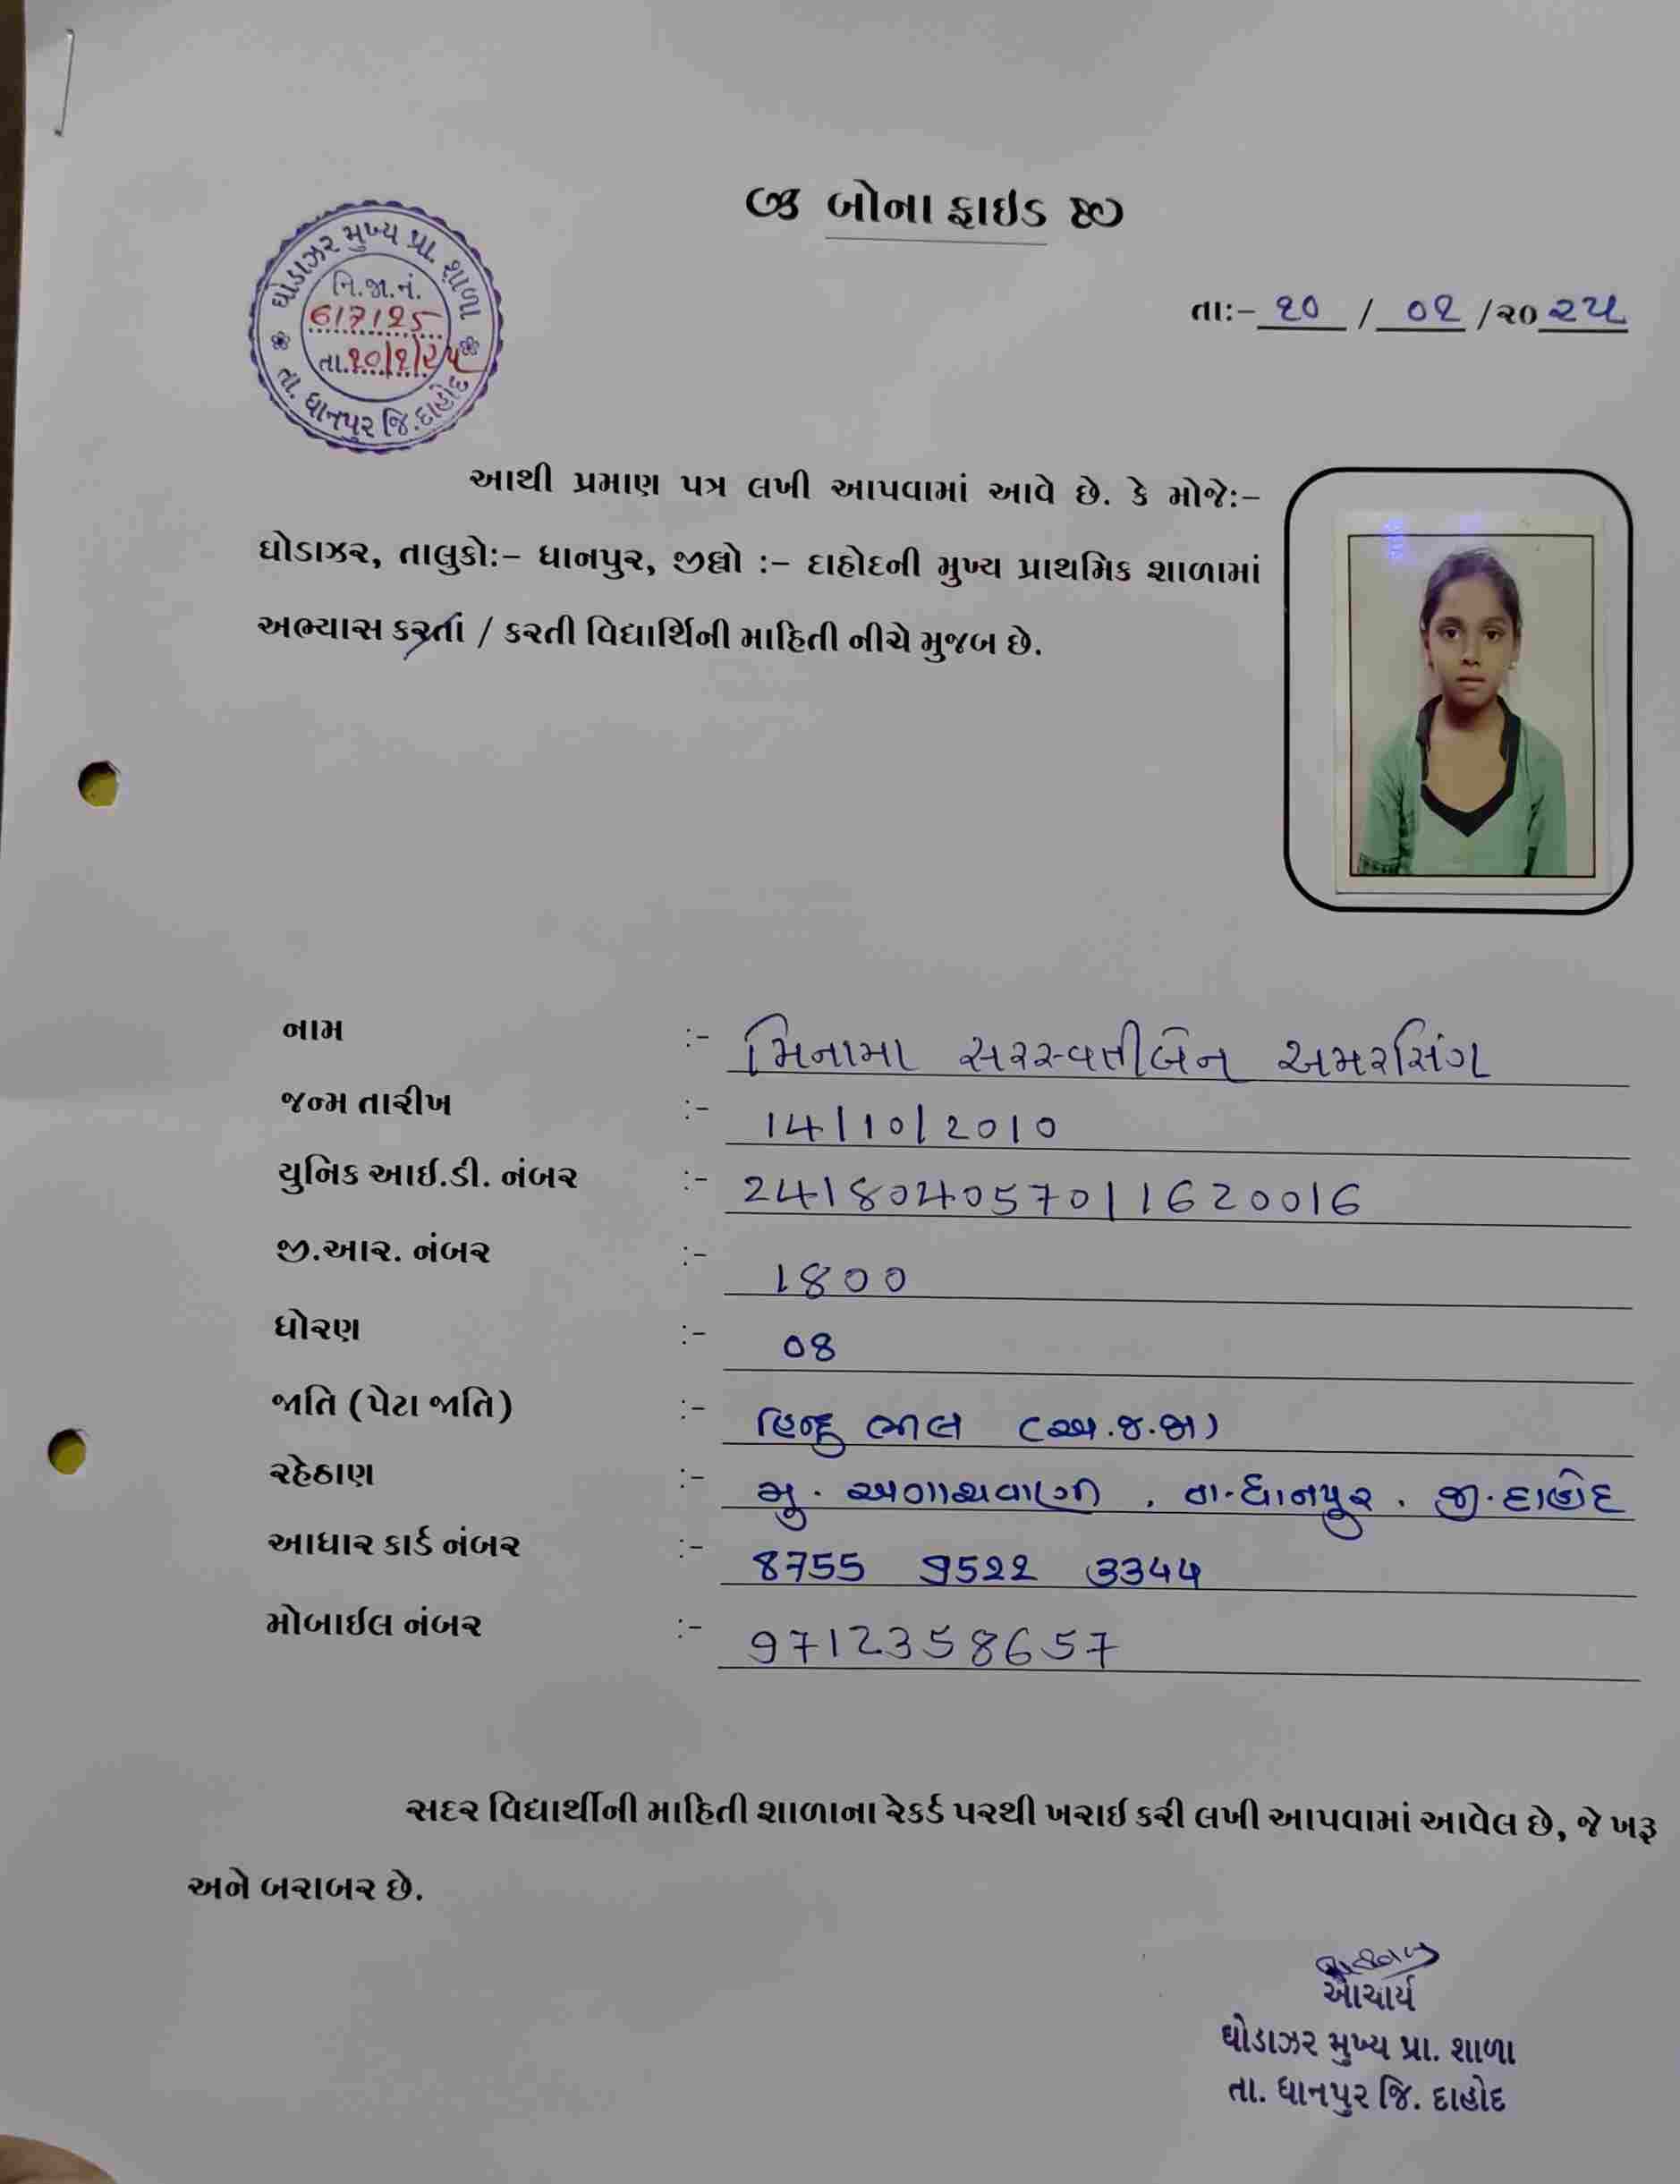 બોના ફાઇડ
ઘોડાઝર મુખ્ય પ્રા. શાળા
નિ.જા.નં.
617125
તા.૧૦/૧/૨૫
તા. ધાનપુર જિ.દાહોદ
તા:- ૧૦ / ૦૧ /૨૦ ૨૫
આથી પ્રમાણ પત્ર લખી આપવામાં આવે છે. કે મોજે:-
ઘોડાઝર, તાલુકો:- ધાનપુર, જીલ્લો :- દાહોદની મુખ્ય પ્રાથમિક શાળામાં
અભ્યાસ કરતાં / કરતી વિદ્યાર્થિની માહિતી નીચે મુજબ છે.
નામ :- મિનામા સરસ્વતીબેન અમરસિંગ
જન્મ તારીખ :- 14/10/2010
યુનિક આઈ.ડી. નંબર :- 241804057011620016
જી.આર. નંબર :- 1800
ધોરણ :- 08
જાતિ (પેટા જાતિ) :- હિન્દુ ભીલ (અ.જ.જા)
રહેઠાણ :- મુ. , તા.ધાનપુર. જી.દાહોદ
આધાર કાર્ડ નંબર :- 8755 9522 3344
મોબાઈલ નંબર :- 9712358657
સદર વિદ્યાર્થીની માહિતી શાળાના રેકર્ડ પરથી ખરાઇ કરી લખી આપવામાં આવેલ છે, જે ખરૂ
અને બરાબર છે.
આચાર્ય
ઘોડાઝર મુખ્ય પ્રા. શાળા
તા. ધાનપુર જિ. દાહોદ